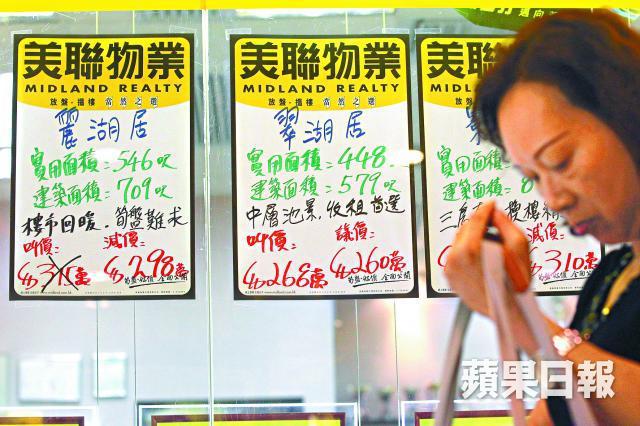 美聯物業
MIDLAND REALTY
放盤・搵樓 當然之選
麗湖居
實用面積=546呎
建築面積=709呎
樓市回暖，筍盤難求
叫價： 減價：
$298萬
美聯物業
MIDLAND REALTY
放盤・搵樓 當然之選
翠湖居
實用面積=448呎
建築面積=579呎
中層池景，收租首選
叫價： 議價：
$268萬 $260萬
筍盤・位價 全面公開
美聯物業
MIDLAND REALTY
放盤・搵樓
實用面積
建築面積
減價：
310萬
全面公開
蘋果日報